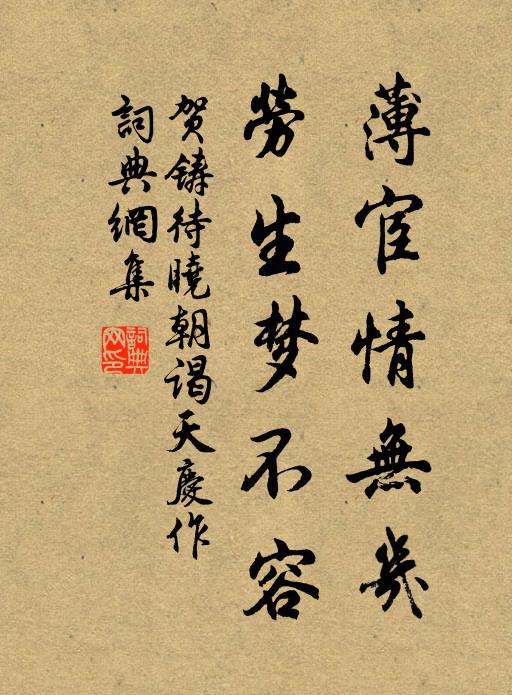 薄宦情無幾
勞生梦不容
贺鑄待曉朝謁天慶作
詞典網集
詞典网印